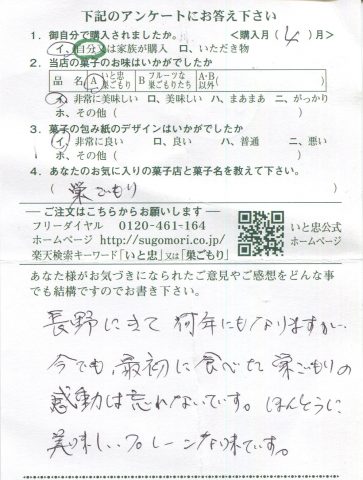 下記のアンケートにお答え下さい
1. 御自分で購入されましたか。 <購入月( 4 )月>
イ、自分又は家族が購入 ロ、いただき物
2. 当店の菓子のお味はいかがでしたか
品 名 A いと忠巣ごもり B フルーツな巣ごもりたち A・B以外( )
イ、非常に美味しい ロ、美味しい ハ、まあまあ ニ、がっかり
ホ、その他( )
3. 菓子の包み紙のデザインはいかがでしたか
イ、非常に良い ロ、良い ハ、普通 ニ、悪い
ホ、その他( )
4. あなたのお気に入りの菓子店と菓子名を教えて下さい。
( 巣ごもり )
― ご注文はこちらからお願いします ―
フリーダイヤル 0120-461-164
ホームページ http://sugomori.co.jp/
楽天検索キーワード「いと忠」又は「巣ごもり」
いと忠公式
ホームページ
あなた様がお気づきになられたご意見やご感想をどんな事
でも結構ですのでお書き下さい。
長野にきて 何年にもなりますが、
今でも、最初に食べた 巣ごもりの
感動は忘れないです。 ほんとうに
美味しい、プレーン